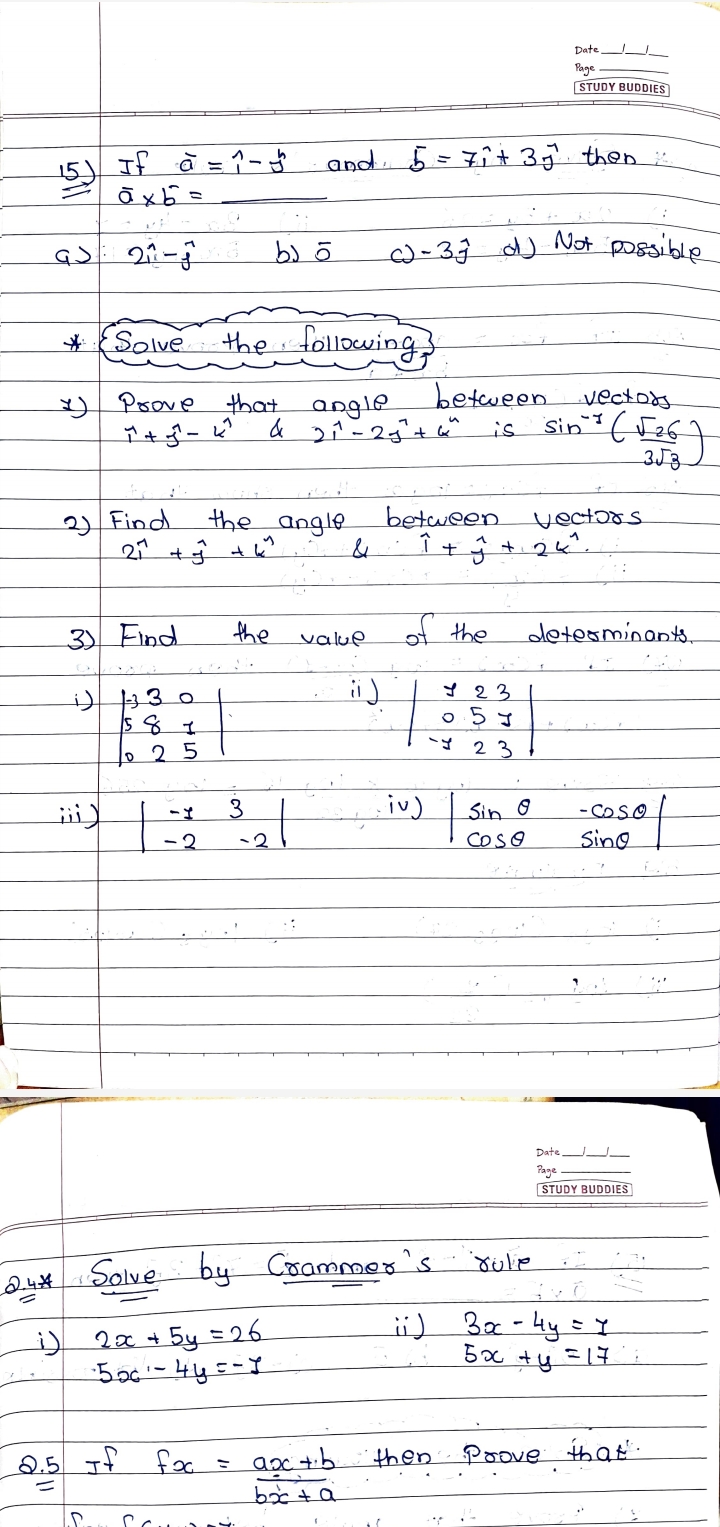 Date __/__/__
Page ______
STUDY BUDDIES
15) If ā = î - ĵ and b̄ = 7î + 3ĵ then
ā × b̄ = ______
a) 2î - ĵ b) ō c) -3ĵ d) Not possible
* Solve the following
1) Prove that angle between vectors
î + ĵ - k̂ & 2î - 2ĵ + k̂ is sin⁻¹ (√26
3√3)
2) Find the angle between vectors
2î + ĵ + k̂ & î + ĵ + 2k̂.
3) Find the value of the determinants.
i) |-3 3 0| ii) |1 2 3|
|5 8 1| |0 5 1|
|0 2 5| |-1 2 3|
iii) |-1 3| iv) |sin θ -cosθ|
|-2 -2| |cosθ sinθ|
Date __/__/__
Page ______
STUDY BUDDIES
Q.4* Solve by Crammer's rule
i) 2x + 5y = 26 ii) 3x - 4y = 1
5x - 4y = -1 5x + y = 17
Q.5 If fx = ax + b then Prove that
bx + a